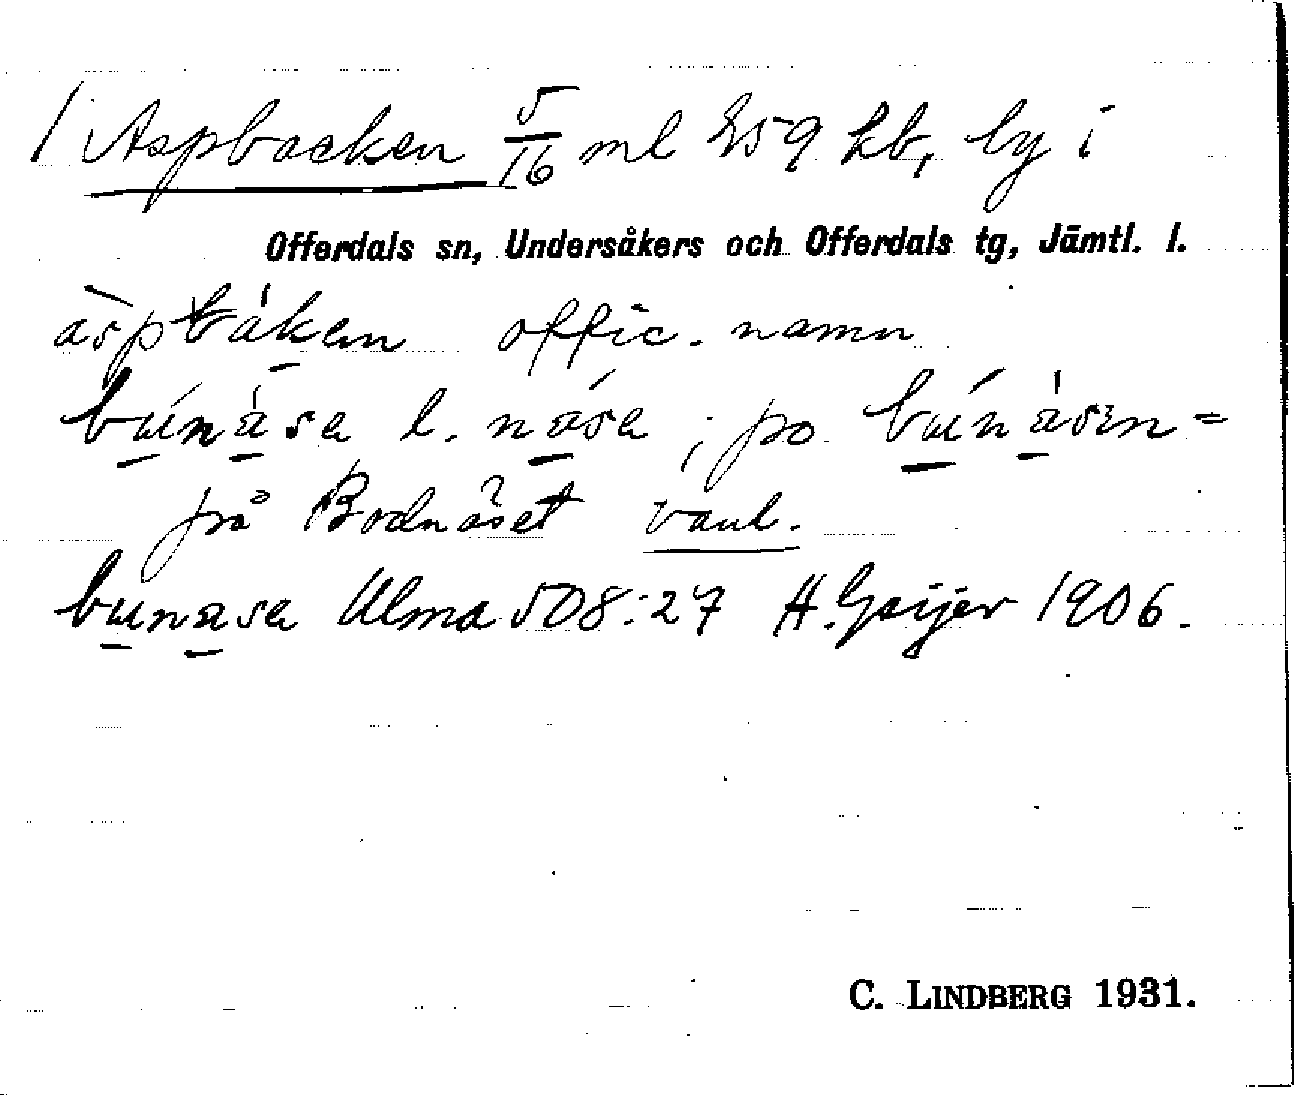 / Aspbacken 5/16 ml S59 kb, by i
Offerdals sn, Undersåkers och Offerdals tg, Jämtl. l.
àspbák̠en offic. namn
bu̠ná̠sa l. na̠sa ; po bu̠ná̠sen =
på Bodnäset vanl.
bu̠na̠sa Ulma 508:27 H. Geijer 1906.
C. LINDBERG 1931.